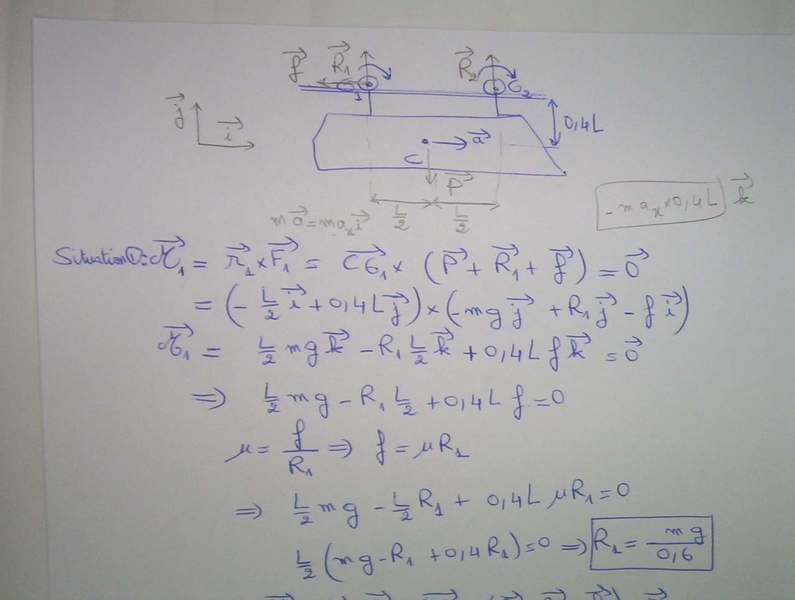 f⃗ R⃗₁ R⃗₂
G₂
j⃗ i⃗
0,4L
C a⃗
P⃗
L/2 L/2
m a⃗ = m aₓ i⃗
- m aₓ × 0,4L k⃗
Situation ①: 𝓜⃗₁ = r⃗₁ × F⃗₁ = CG⃗₁ × (P⃗ + R⃗₁ + f⃗) = 0⃗
= (- L/2 i⃗ + 0,4L j⃗) × (-mg j⃗ + R₁ j⃗ - f i⃗)
𝓜⃗₁ = L/2 mg k⃗ - R₁ L/2 k⃗ + 0,4L f k⃗ = 0⃗
⇒ L/2 mg - R₁ L/2 + 0,4L f = 0
μ = f/R₁ ⇒ f = μR₁
⇒ L/2 mg - L/2 R₁ + 0,4L μR₁ = 0
L/2 (mg - R₁ + 0,4R₁) = 0 ⇒ R₁ = mg/0,6